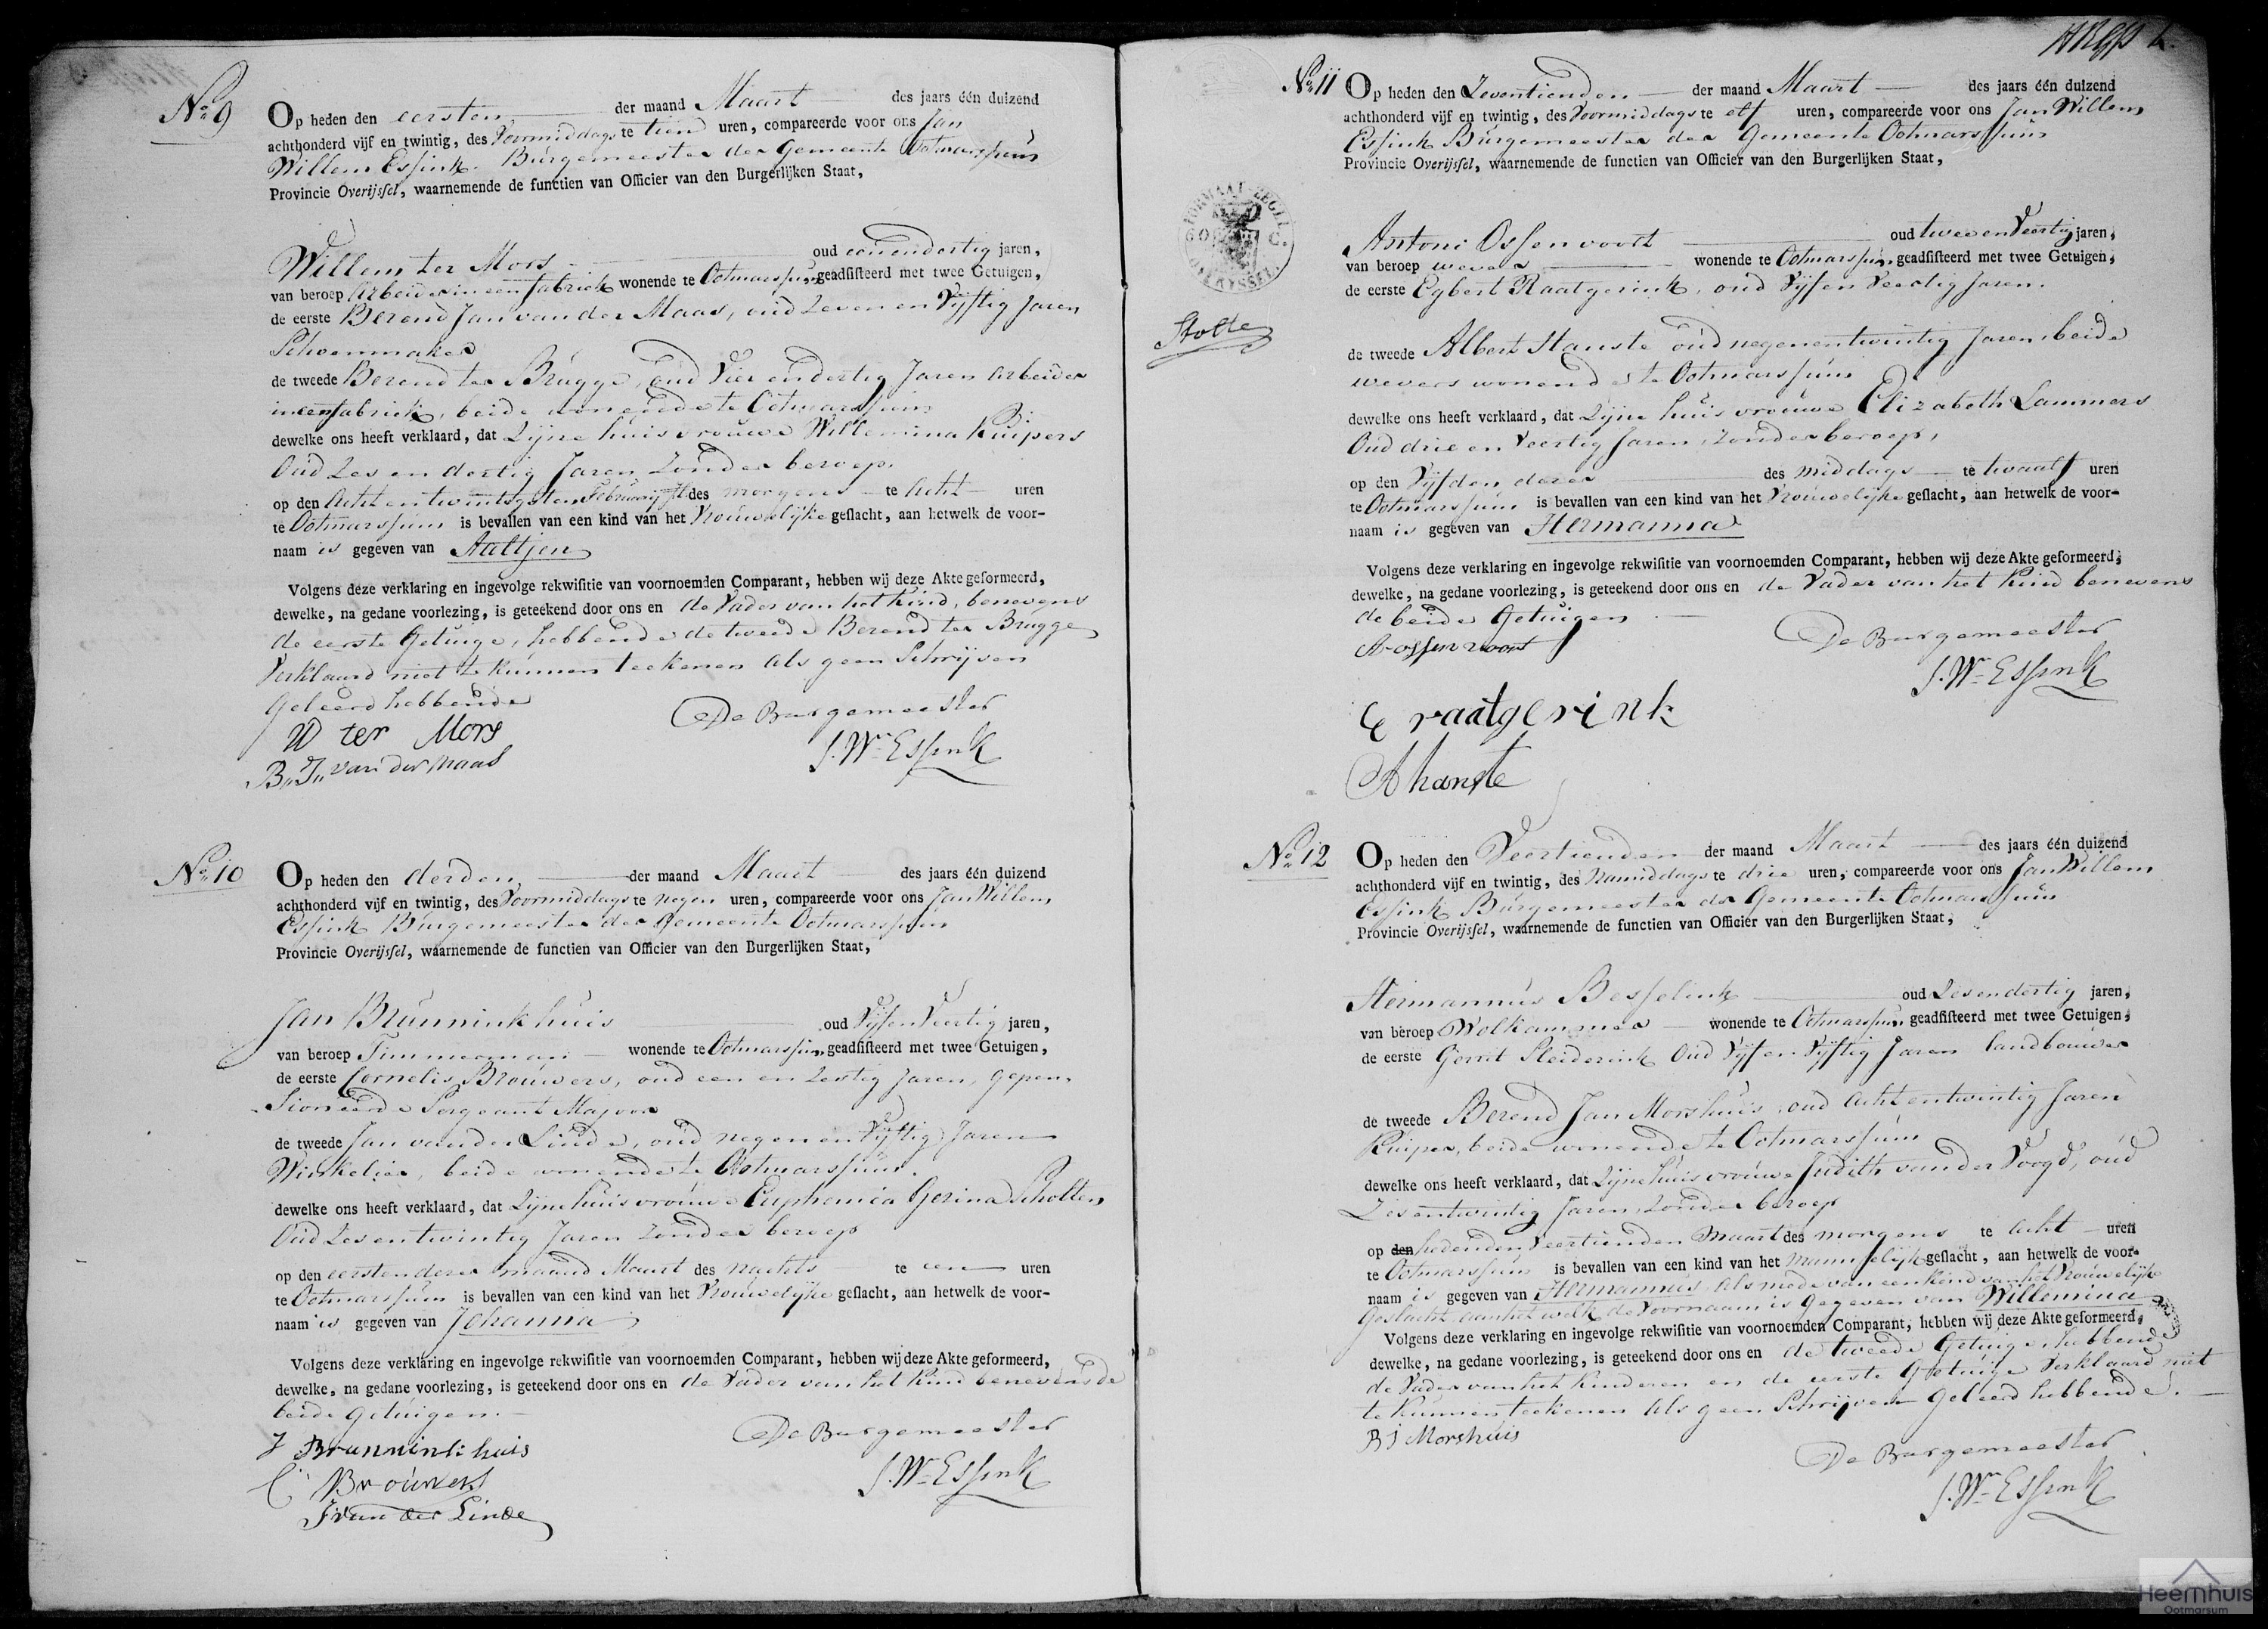 No 9
Op heden den eersten der maand Maart des jaars één duizend
achthonderd vijf en twintig, des Voormiddags te tien uren, compareerde voor ons Jan
Willem Essink Burgemeester der Gemeente Ootmarssum
Provincie Overijssel, waarnemende de functien van Officier van den Burgerlijken Staat,
Willem ter Mors oud eenendertig jaren,
van beroep Arbeider in een fabriek wonende te Ootmarssum geadsisteerd met twee Getuigen,
de eerste Berend Jan van der Maas, oud Zeven en Vijftig Jaren
Schoenmaker
de tweede Berend ter Brugge, oud Vier en dertig Jaren Arbeider
in een fabriek, beide wonende te Ootmarssum
dewelke ons heeft verklaard, dat Zijne huisvrouwe Willemina Kuipers
Oud Zes en dertig Jaren Zonder beroep.
op den Acht en twintigsten Februarij des morgens te Acht uren
te Ootmarssum is bevallen van een kind van het Vrouwelijke geslacht, aan hetwelk de voor-
naam is gegeven van Aaltjen
Volgens deze verklaring en ingevolge rekwisitie van voornoemden Comparant, hebben wij deze Akte geformeerd,
dewelke, na gedane voorlezing, is geteekend door ons en de Vader van het Kind, benevens
de eerste Getuige, hebbende de tweede Berend ter Brugge
Verklaard niet te kunnen teekenen Als geen Schrijven
Geleerd hebbende
De Burgemeester
W ter Mors
J. Wm Essink
B. J. van der Maas
No 10
Op heden den derden der maand Maart des jaars één duizend
achthonderd vijf en twintig, des Voormiddags te negen uren, compareerde voor ons Jan Willem
Essink Burgemeester der Gemeente Ootmarssum
Provincie Overijssel, waarnemende de functien van Officier van den Burgerlijken Staat,
Jan Brunninkhuis oud Vijf en Veertig jaren,
van beroep Timmerman wonende te Ootmarssum geadsisteerd met twee Getuigen,
de eerste Cornelis Brouwers, oud een en Zestig Jaren, gepen-
sioneerde Sergeant Majoor
de tweede Jan van der Linde, oud negen en Vijftig Jaren
Winkelier, beide wonende te Ootmarssum.
dewelke ons heeft verklaard, dat Zijne huisvrouwe Euphemia Gerina Scholten
Oud Zes en twintig Jaren Zonder beroep
op den eersten dezer maand Maart des nachts te een uren
te Ootmarssum is bevallen van een kind van het Vrouwelijke geslacht, aan hetwelk de voor-
naam is gegeven van Johanna
Volgens deze verklaring en ingevolge rekwisitie van voornoemden Comparant, hebben wij deze Akte geformeerd,
dewelke, na gedane voorlezing, is geteekend door ons en de Vader van het Kind benevens de
beide Getuigen.
De Burgemeester
J Brunninkhuis
J. Wm Essink
C Brouwers
J van der Linde
No 11
Op heden den Zeventienden der maand Maart des jaars één duizend
achthonderd vijf en twintig, des Voormiddags te elf uren, compareerde voor ons Jan Willem
Essink Burgemeester der Gemeente Ootmarssum
Provincie Overijssel, waarnemende de functien van Officier van den Burgerlijken Staat,
Antoni Ossenvoort oud twee en Veertig jaren,
van beroep wever wonende te Ootmarssum geadsisteerd met twee Getuigen,
de eerste Egbert Raatgerink, oud Vijf en Veertig Jaren.
Stolte
de tweede Albert Hanste oud negenentwintig Jaren, beide
wevers wonende te Ootmarssum
dewelke ons heeft verklaard, dat Zijne huisvrouwe Elizabeth Lammers
Oud drie en Veertig Jaren, Zonder beroep,
op den Vijfden dezer des middags te twaalf uren
te Ootmarssum is bevallen van een kind van het Vrouwelijke geslacht, aan hetwelk de voor-
naam is gegeven van Hermanna
Volgens deze verklaring en ingevolge rekwisitie van voornoemden Comparant, hebben wij deze Akte geformeerd,
dewelke, na gedane voorlezing, is geteekend door ons en de Vader van het Kind benevens
de beide Getuigen
De Burgemeester
A ossenvoort
J. Wm Essink
E raatgerink
A hanste
No 12
Op heden den Veertienden der maand Maart des jaars één duizend
achthonderd vijf en twintig, des Namiddags te drie uren, compareerde voor ons Jan Willem
Essink Burgemeester der Gemeente Ootmarssum
Provincie Overijssel, waarnemende de functien van Officier van den Burgerlijken Staat,
Hermannus Besselink oud Zesendertig jaren,
van beroep Wolkammer wonende te Ootmarssum geadsisteerd met twee Getuigen,
de eerste Gerrit Sleiderink Oud Vijf en Vijftig Jaren landbouwer
de tweede Berend Jan Morshuis, oud Acht en twintig Jaren
Kuiper, beide wonende te Ootmarssum
dewelke ons heeft verklaard, dat Zijne huisvrouwe Judith van der Voogd, oud
Zes en twintig Jaren, Zonder beroep
op den heden den Veertienden Maart des morgens te Acht uren
te Ootmarssum is bevallen van een kind van het Mannelijk geslacht, aan hetwelk de voor-
naam is gegeven van Hermannus, Als mede van een kind van het Vrouwelijk
Geslacht, aan het welk de Voornaam is Gegeven van Willemina
Volgens deze verklaring en ingevolge rekwisitie van voornoemden Comparant, hebben wij deze Akte geformeerd,
dewelke, na gedane voorlezing, is geteekend door ons en de tweede Getuige, hebbende
de Vader van het Kinderen en de eerste Getuige Verklaard niet
te Kunnen teekenen Als geen Schrijven Geleerd hebbende.
BJ Morshuis
De Burgemeester
J. Wm Essink
Heemhuis
Ootmarsum